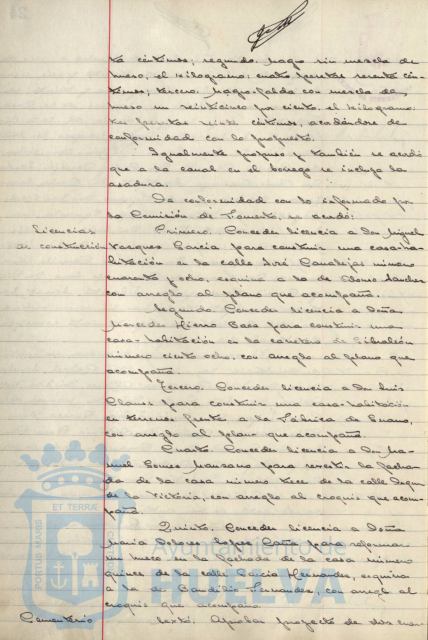 ta céntimos; segundo. magro sin mezcla de
hueso, el kilogramo: cuatro pesetas sesenta cén-
timos; tercero. magro-falda con mezcla de
hueso un veinticinco por ciento, el kilogramo
tres pesetas veinte céntimos, acordándose de
conformidad con lo propuesto.
Igualmente propuso y también se acordó
que a la canal en el borrego se incluya la
asadura.
De conformidad con lo informado por
la Comisión de Fomento, se acordó:
Licencias
de construcción
Primero. Conceder licencia a Don Miguel
Vazquez Garcia para construir una casa-ha-
bitación en la calle José Canalejas número
cuarenta y ocho, esquina a la de Alonso Sanchez
con arreglo al plano que acompaña.
Segundo. Conceder licencia a Doña
Mercedes Hierro para construir una
casa-habitación en la carretera de Gibraleón
número ciento ocho, con arreglo al plano que
acompaña.
Tercero. Conceder licencia a Don Luis
para construir una casa-habitación
en terrenos frente a la Fábrica de Guano,
con arreglo al plano que acompaña.
Cuarto. Conceder licencia a Don Ma-
nuel Gomez Manzano para revestir la facha-
da de la casa número trece de la calle Duque
de la Victoria, con arreglo al croquis que acom-
paña.
Quinto. Conceder licencia a Doña
Maria Dolores Lopez para reformar
un hueco en la fachada de la casa número
quince de la calle Garcia Hernandez, esquina
a la de Candido Fernandez, con arreglo al
croquis que acompaña.
Cementerio
Sexto. Aprobar proyecto de dos cuar-
PORTUS MARIS
ET TERRAE
Ayuntamiento de
HUELVA